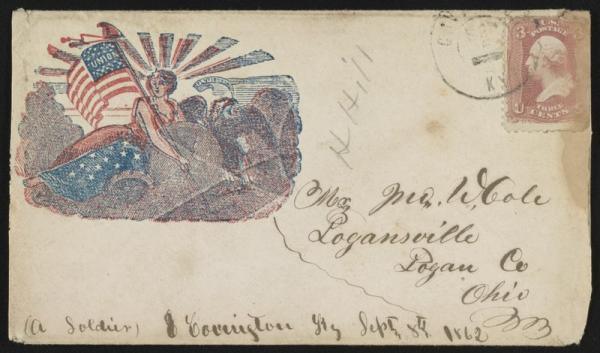 UNION
H Hill
KY
3 U.S. 3
POSTAGE
U THREE S
CENTS
Mr Jno. W. Cole
Logansville
Logan Co
Ohio
(A Soldier) Covington Ky Sept 8th 1862